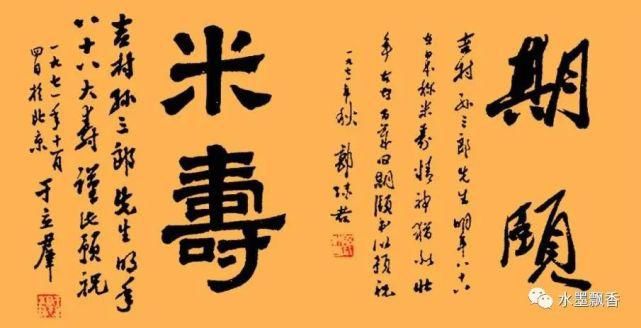 期頤
吉村孙三郎先生明年八十八
在日本称米寿精神犹如壮
年百年曰期颐书以预祝
一九七一年秋 郭沫若
米壽
吉村孙三郎先生明年
八十八大寿谨此预祝
一九七一年十一月
四日於北京 于立群
水墨飘香